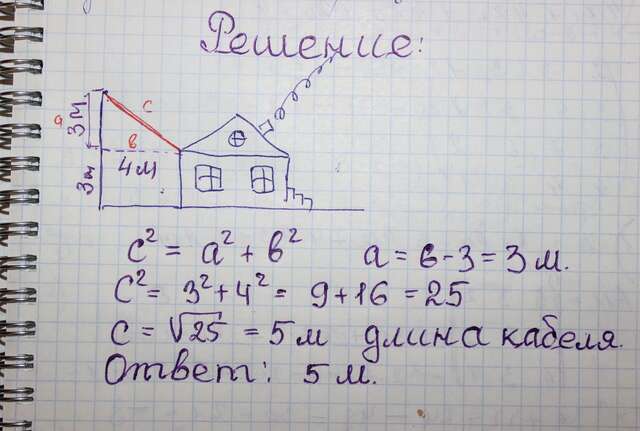 Решение:
a
3м
c
в
4м
3м
c² = a² + b²
a = 6-3 = 3 м.
c² = 3² + 4² = 9 + 16 = 25
c = √25 = 5 м длина кабеля.
Ответ: 5 м.